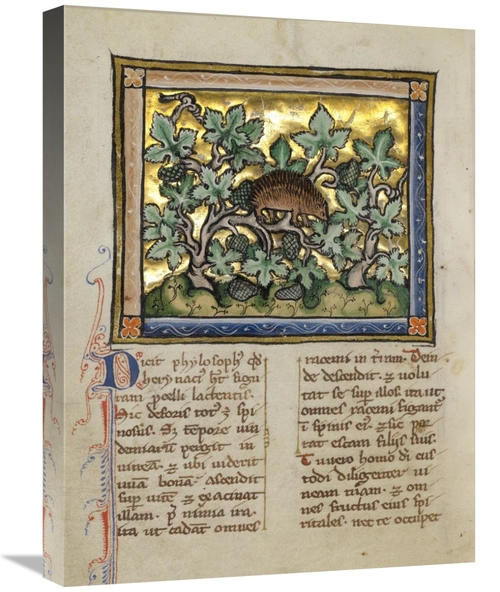 Dicit phylosoph' qd
herynaci' ht figu
ram porcelli lactentis.
Sic deforis tot' ƺ spi
nosus. Sƺ tempore uin
demiarū pergit in
uineā. ƺ ubi uiderit
uuā bonā. ascendit
sup uitē ƺ exacinat
illam.
ita ut cadāt omnes
racemi in t'rām. Dein
de descendit. ƺ uolu
tat se sup illos. ita ut
omnes racemi figant'
ī spinis ei'. ƺ sic por
tat escam filiis suis.
Tu uero homo di cus
todi diligenter ui
neam tuam. ƺ om
nes fructus eius spi
ritales. nec te occupet